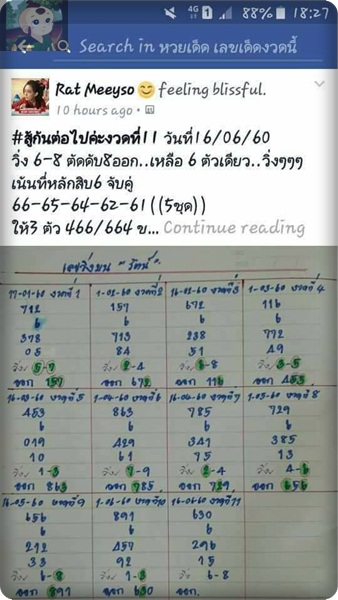 4G 1 88% 18:27
Search in หวยเด็ด เลขเด็ดงวดนี้
Rat Meeyso 😊 feeling blissful.
10 hours ago •
#สู้กันต่อไปค่ะงวดที่11 วันที่16/06/60
วิ่ง 6-8 ตัดดับ8ออก..เหลือ 6 ตัวเดียว..วิ่งๆๆๆ
เน้นที่หลักสิบ6 จับคู่
66-65-64-62-61 ((5ชุด))
ให้3 ตัว 466/664 ข... Continue reading
เลขวิ่งบน "รัตน์"
17-01-60 งวดที่1 1-02-60 งวดที่2 16-02-60 งวดที่3 1-03-60 งวดที่4
712 157 672 116
6 6 6 6
378 713 238 772
05 84 51 49
วิ่ง 5-7 วิ่ง 2-4 วิ่ง 6-8 วิ่ง 3-5
ออก 157 ออก 672 ออก 116 ออก 453
16-03-60 งวดที่5 1-04-60 งวดที่6 16-04-60 งวดที่7 1-05-60 งวดที่8
453 863 785 729
6 6 6 6
019 429 341 385
10 61 75 13
วิ่ง 1-3 วิ่ง 7-9 วิ่ง 2-4 วิ่ง 4-6
ออก 863 ออก 785 ออก 729 ออก 656
16-05-60 งวดที่9 1-06-60 งวดที่10 16-06-60 งวดที่11
656 891 630
6 6 6
212 457 296
33 92 15
วิ่ง 6-8 วิ่ง 1-3 วิ่ง 6-8
ออก 891 ออก 630 ออก